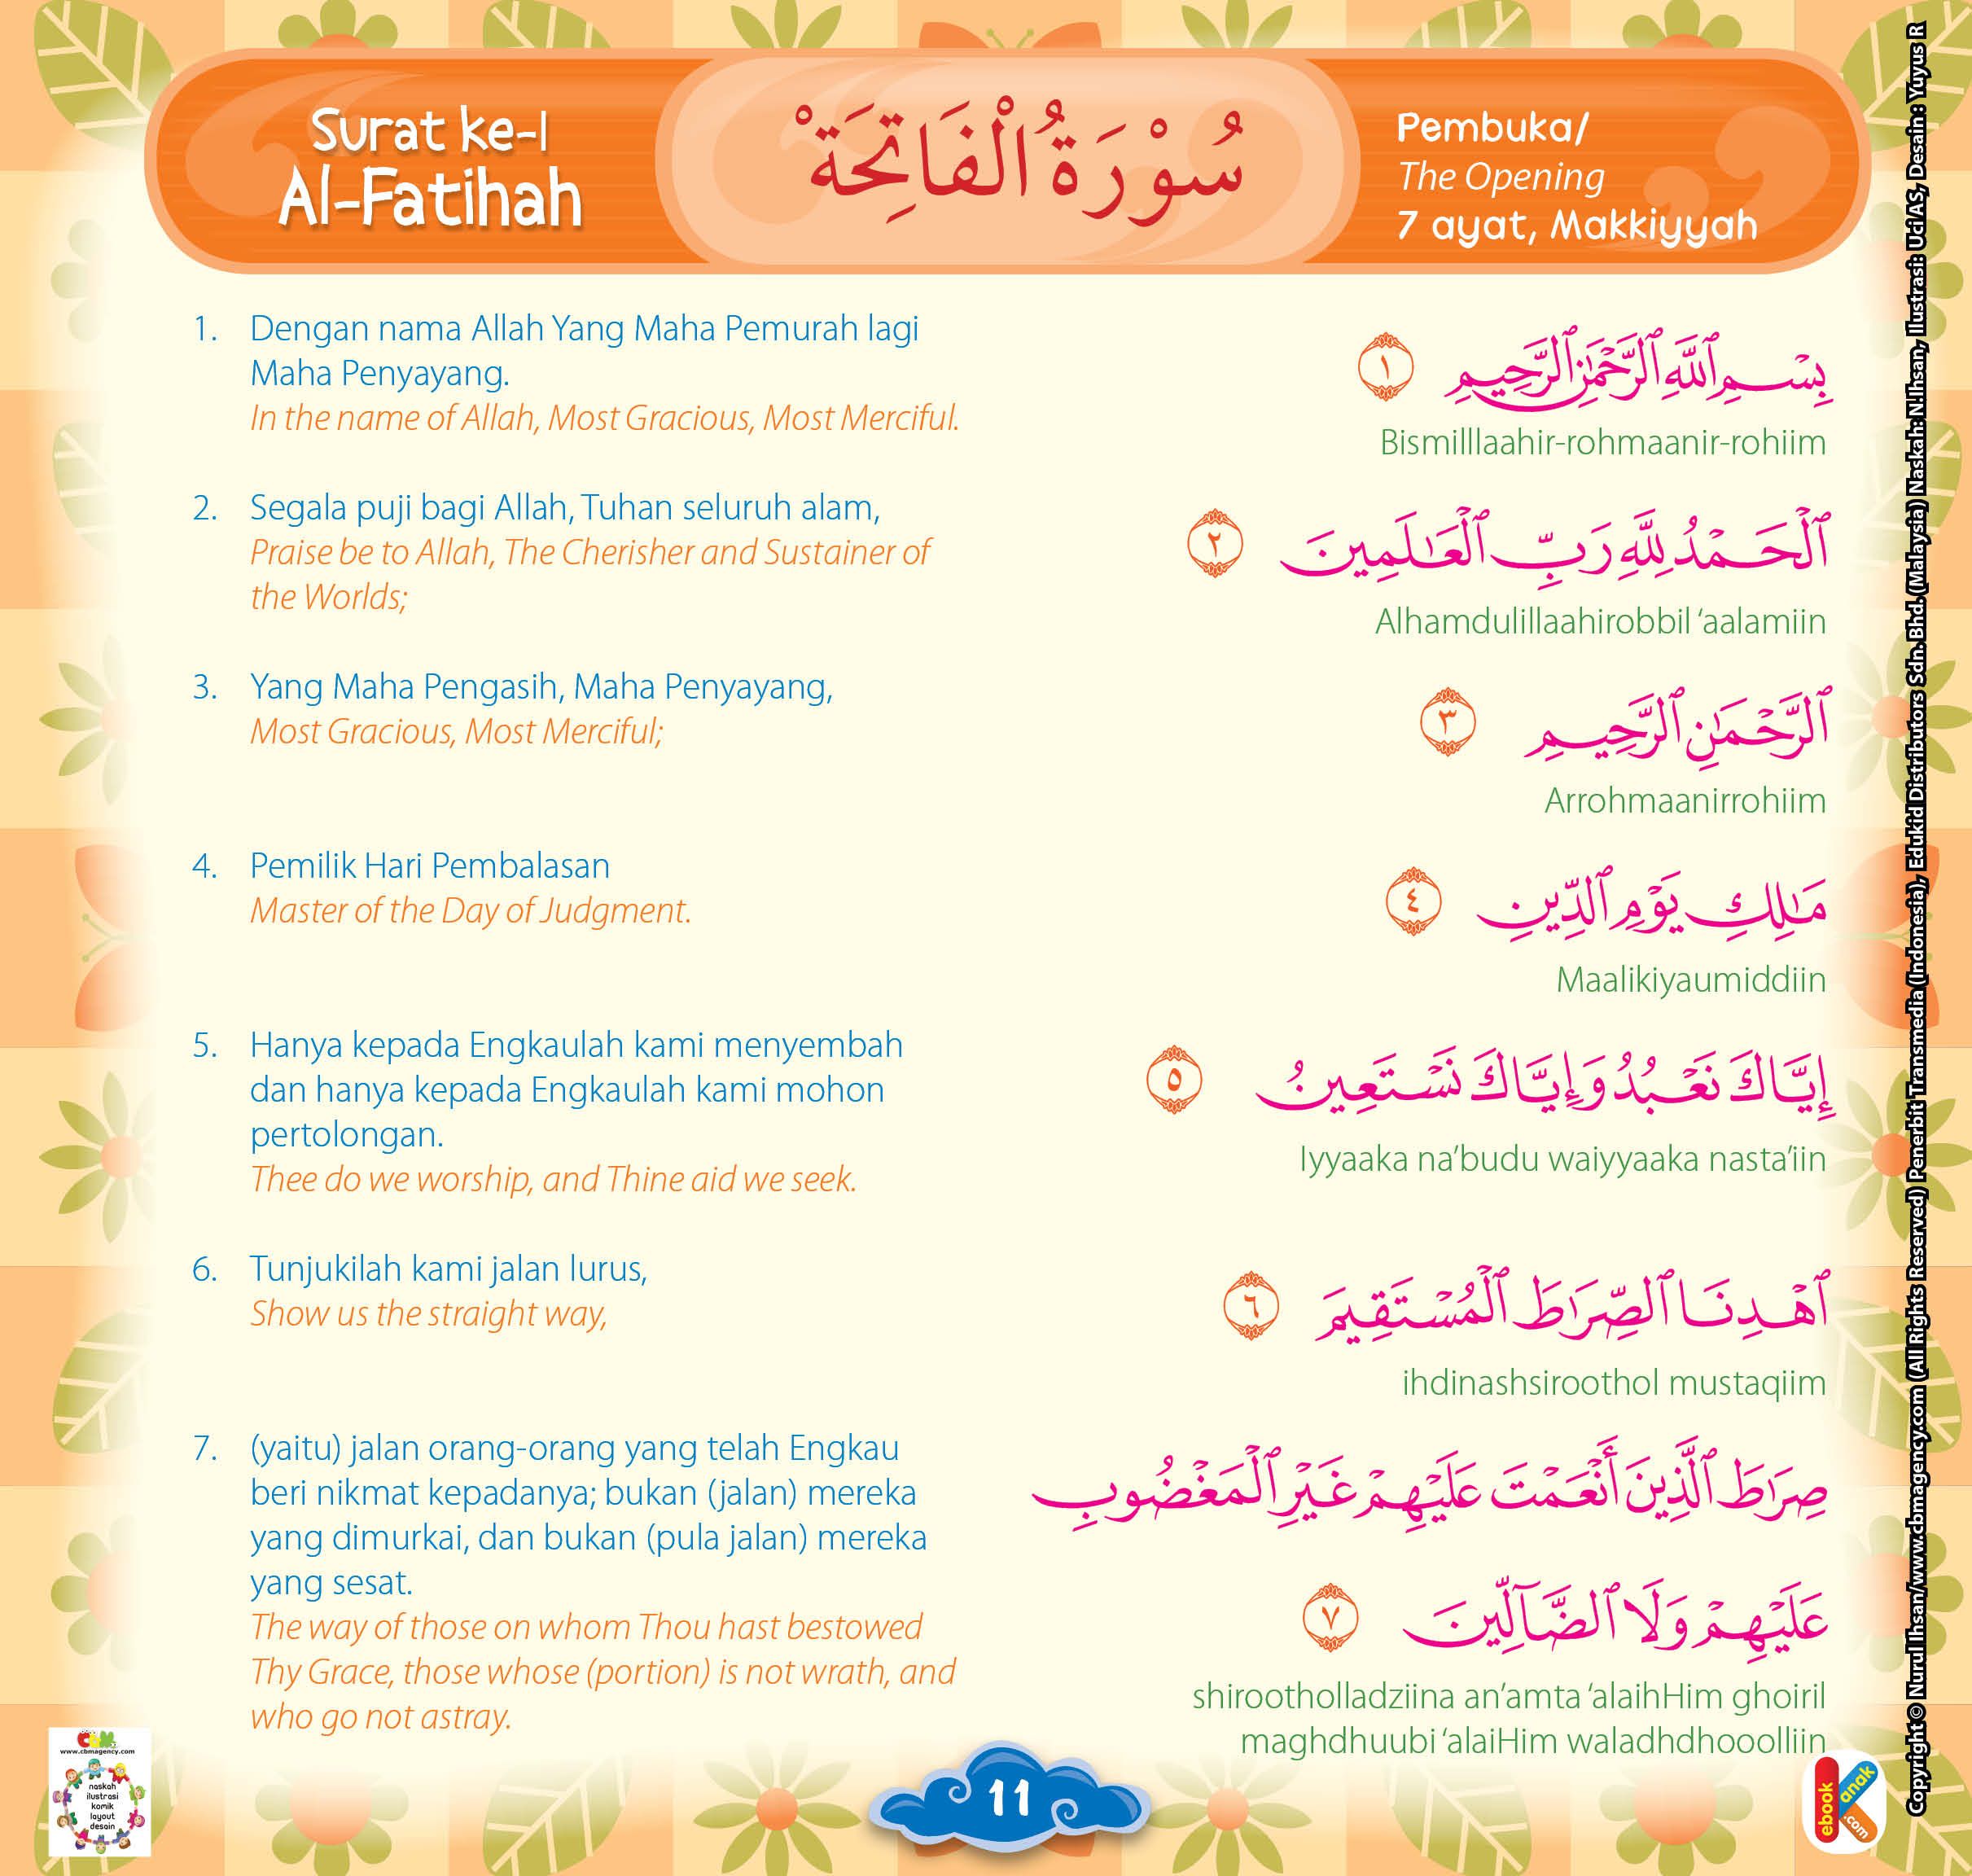 Surat ke-1
Al-Fatihah
سُوْرَةُ الْفَاتِحَةْ
Pembuka/
The Opening
7 ayat, Makkiyyah
1. Dengan nama Allah Yang Maha Pemurah lagi
Maha Penyayang.
In the name of Allah, Most Gracious, Most Merciful.
بِسْمِ ٱللَّهِ ٱلرَّحْمَٰنِ ٱلرَّحِيمِ ١
Bismilllaahir-rohmaanir-rohiim
2. Segala puji bagi Allah, Tuhan seluruh alam,
Praise be to Allah, The Cherisher and Sustainer of
the Worlds;
ٱلْحَمْدُ لِلَّهِ رَبِّ ٱلْعَٰلَمِينَ ٢
Alhamdulillaahirobbil ‘aalamiin
3. Yang Maha Pengasih, Maha Penyayang,
Most Gracious, Most Merciful;
ٱلرَّحْمَٰنِ ٱلرَّحِيمِ ٣
Arrohmaanirrohiim
4. Pemilik Hari Pembalasan
Master of the Day of Judgment.
مَٰلِكِ يَوْمِ ٱلدِّينِ ٤
Maalikiyaumiddiin
5. Hanya kepada Engkaulah kami menyembah
dan hanya kepada Engkaulah kami mohon
pertolongan.
Thee do we worship, and Thine aid we seek.
إِيَّاكَ نَعْبُدُ وَإِيَّاكَ نَسْتَعِينُ ٥
Iyyaaka na’budu waiyyaaka nasta’iin
6. Tunjukilah kami jalan lurus,
Show us the straight way,
ٱهْدِنَا ٱلصِّرَٰطَ ٱلْمُسْتَقِيمَ ٦
ihdinashsiroothol mustaqiim
7. (yaitu) jalan orang-orang yang telah Engkau
beri nikmat kepadanya; bukan (jalan) mereka
yang dimurkai, dan bukan (pula jalan) mereka
yang sesat.
The way of those on whom Thou hast bestowed
Thy Grace, those whose (portion) is not wrath, and
who go not astray.
صِرَٰطَ ٱلَّذِينَ أَنْعَمْتَ عَلَيْهِمْ غَيْرِ ٱلْمَغْضُوبِ
عَلَيْهِمْ وَلَا ٱلضَّآلِّينَ ٧
shirootholladziina an’amta ‘alaihHim ghoiril
maghdhuubi ‘alaiHim waladhdhooolliin
11
CBM
www.cbmagency.com
naskah
ilustrasi
komik
layout
desain
ebook
anak
.com
Copyright © Nurul Ihsan/www.cbmagency.com (All Rights Reserved) Penerbit Transmedia (Indonesia), Edukid Distributors Sdn. Bhd. (Malaysia) Naskah: N.Ihsan, Ilustrasi: Uci AS, Desain: Yuyus R